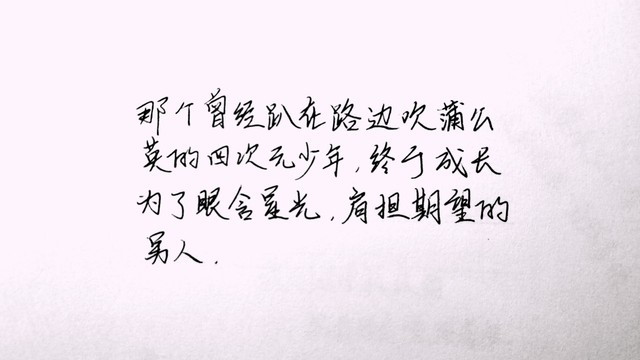 那个曾经趴在路边吹蒲公
英的四次元少年,终于成长
为了眼含星光,肩担期望的
男人.